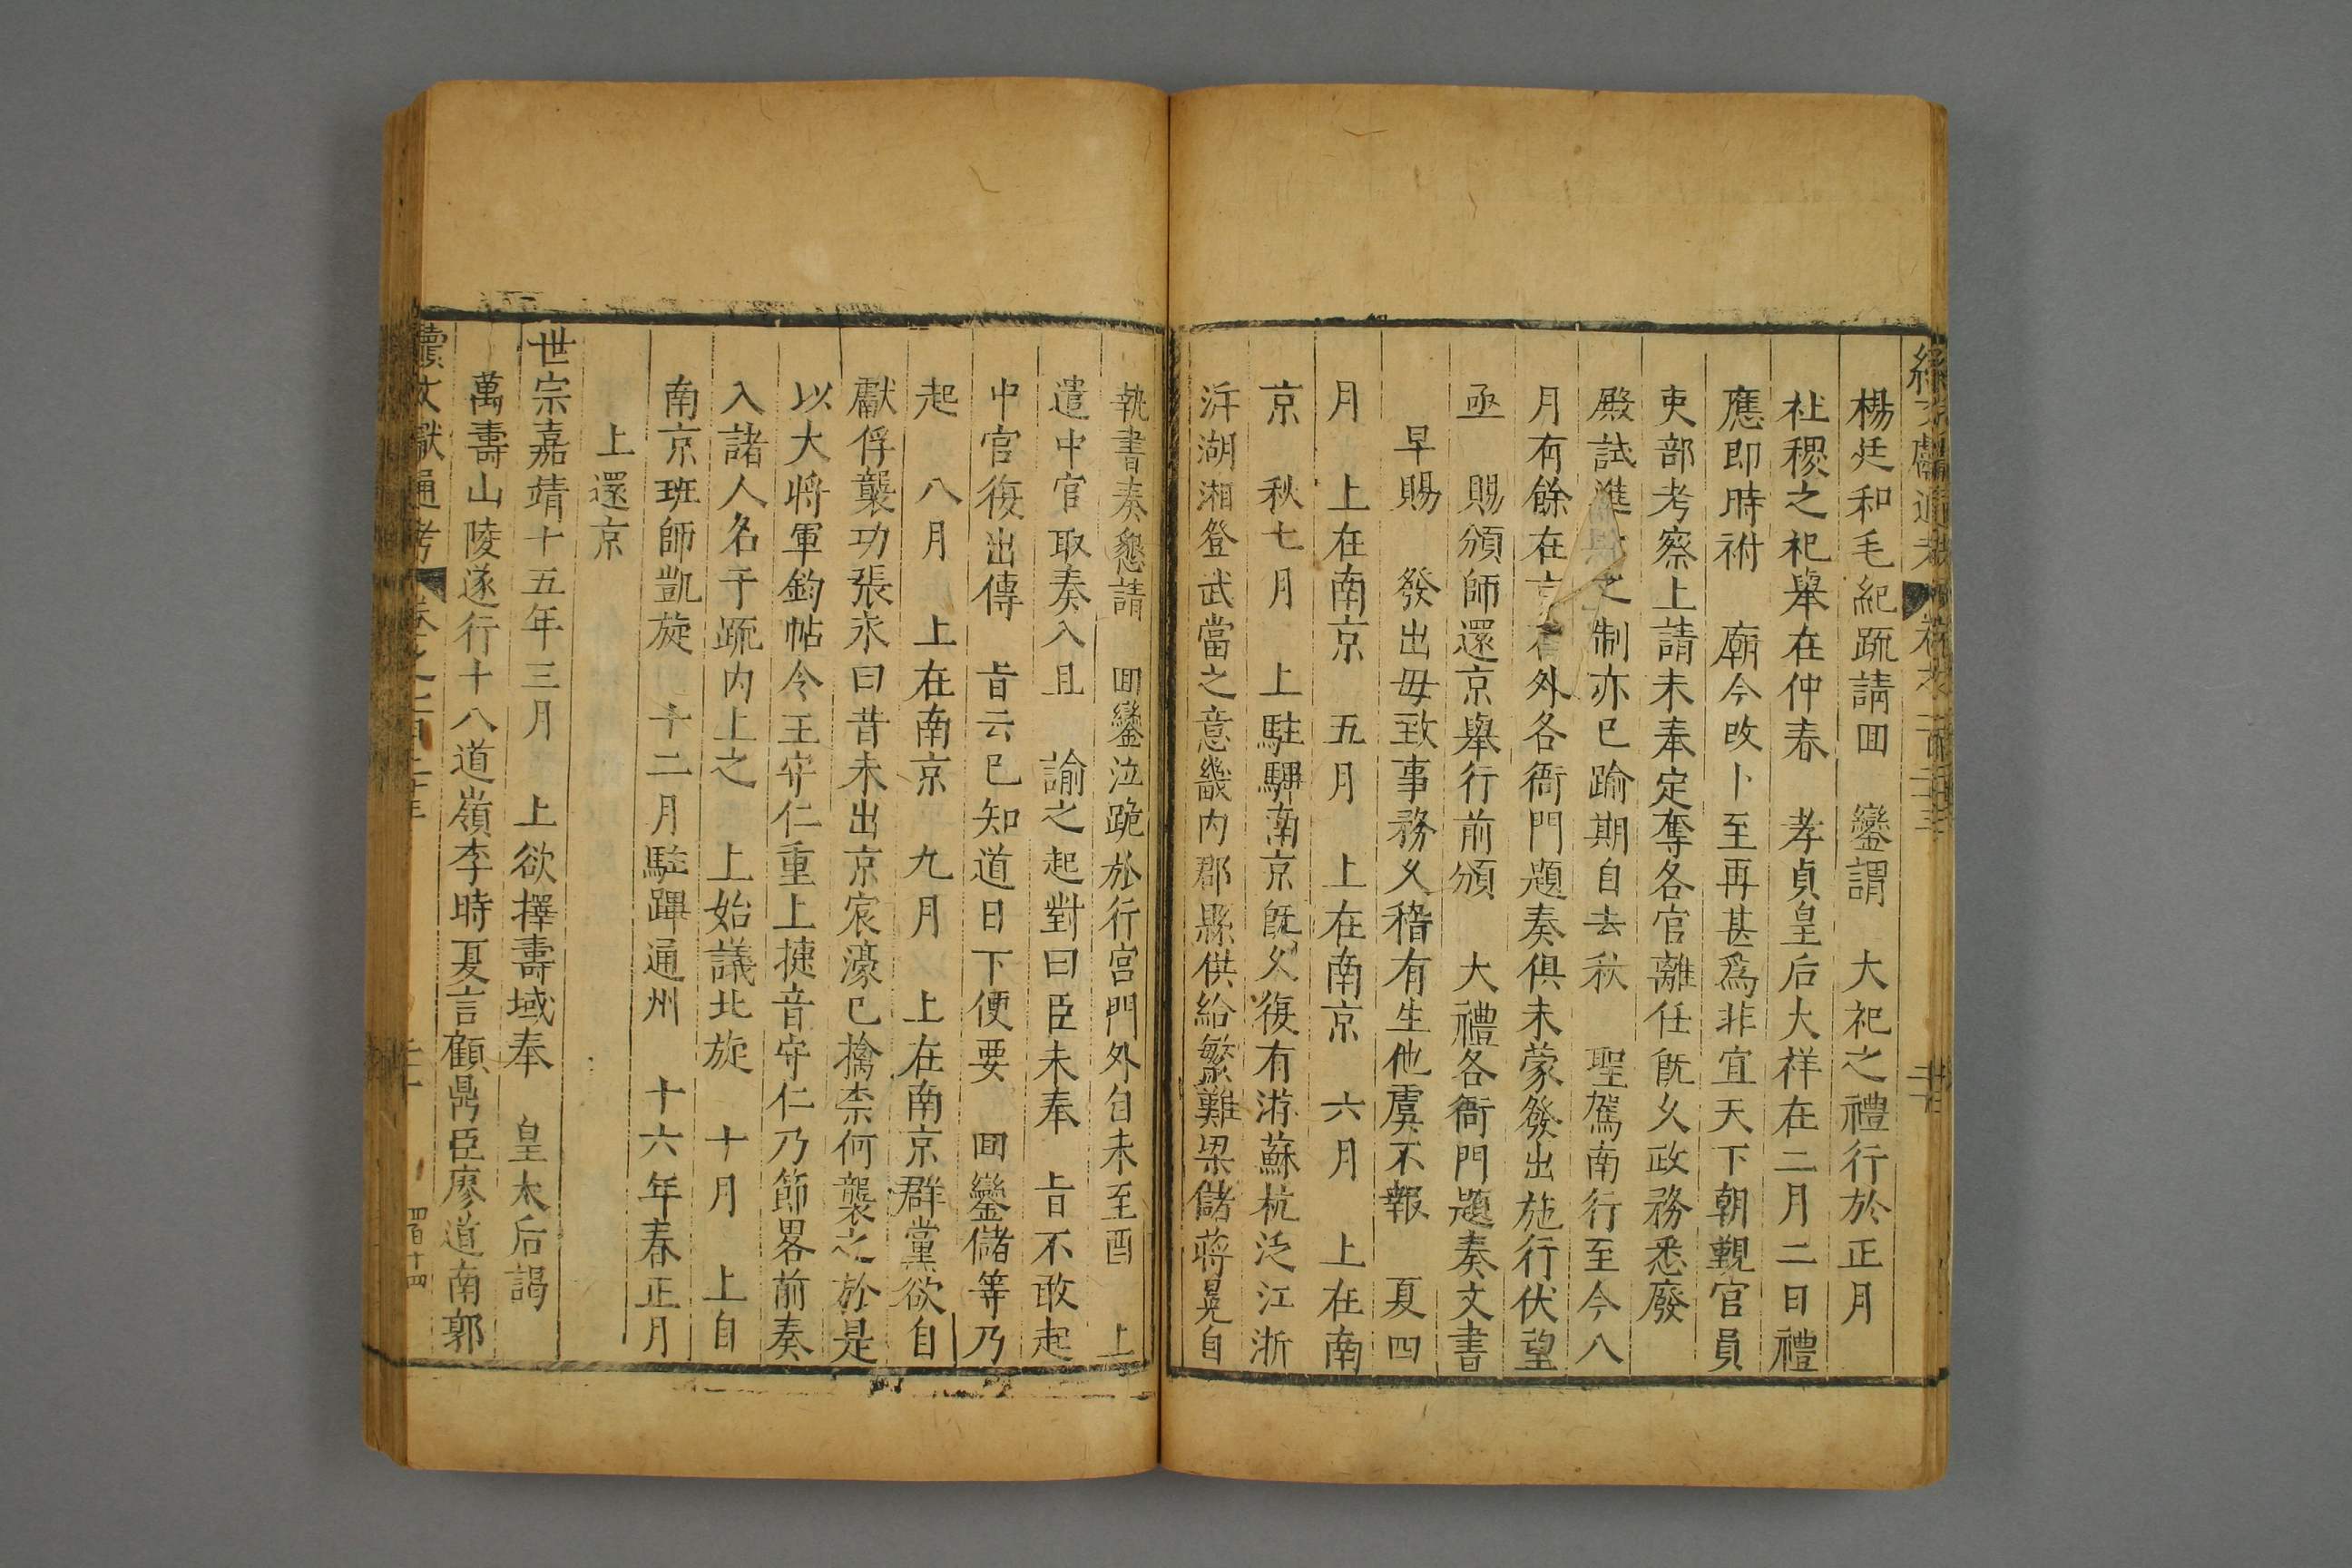 楊廷和毛紀疏請回 鑾謂 大祀之禮行於正月
社稷之祀舉在仲春 孝貞皇后大祥在二月二日禮
應即時祔 廟今改卜至再甚爲非宜天下朝覲官員
吏部考察上請未奉定奪各官離任既久政務悉廢
殿試進 之制亦已踰期自去秋 聖駕南行至今八
月有餘在京 外各衙門題奏俱未蒙發出施行伏望
亟 賜頒師還京舉行前頒 大禮各衙門題奏文書
早賜 發出毋致事務乆稽有生他虞不報 夏四
月 上在南京 五月 上在南京 六月 上在南
京 秋七月 上駐驆南京旣乆復有游蘇杭泛江浙
泝湖湘登武當之意畿内郡縣供給繁難梁儲蔣冕自
執書奏懇請 回鑾泣跪於行宮門外自未至酉 上
遣中官取奏入且 諭之起對曰臣未奉 旨不敢起
中官復出傳 旨云已知道日下便要 回鑾儲等乃
起 八月 上在南京 九月 上在南京群黨欲自
獻俘襲功張永曰昔未出京宸濠已擒柰何襲之於是
以大將軍鈞帖令王守仁重上捷音守仁乃節畧前奏
入諸人名于疏内上之 上始議北旋 十月 上自
南京班師凱旋 十二月駐蹕通州 十六年春正月
上還京
世宗嘉靖十五年三月 上欲擇壽域奉 皇太后謁
萬壽山陵遂行十八道嶺李時夏言顧鼎臣廖道南郭
續文獻通考
四百十四